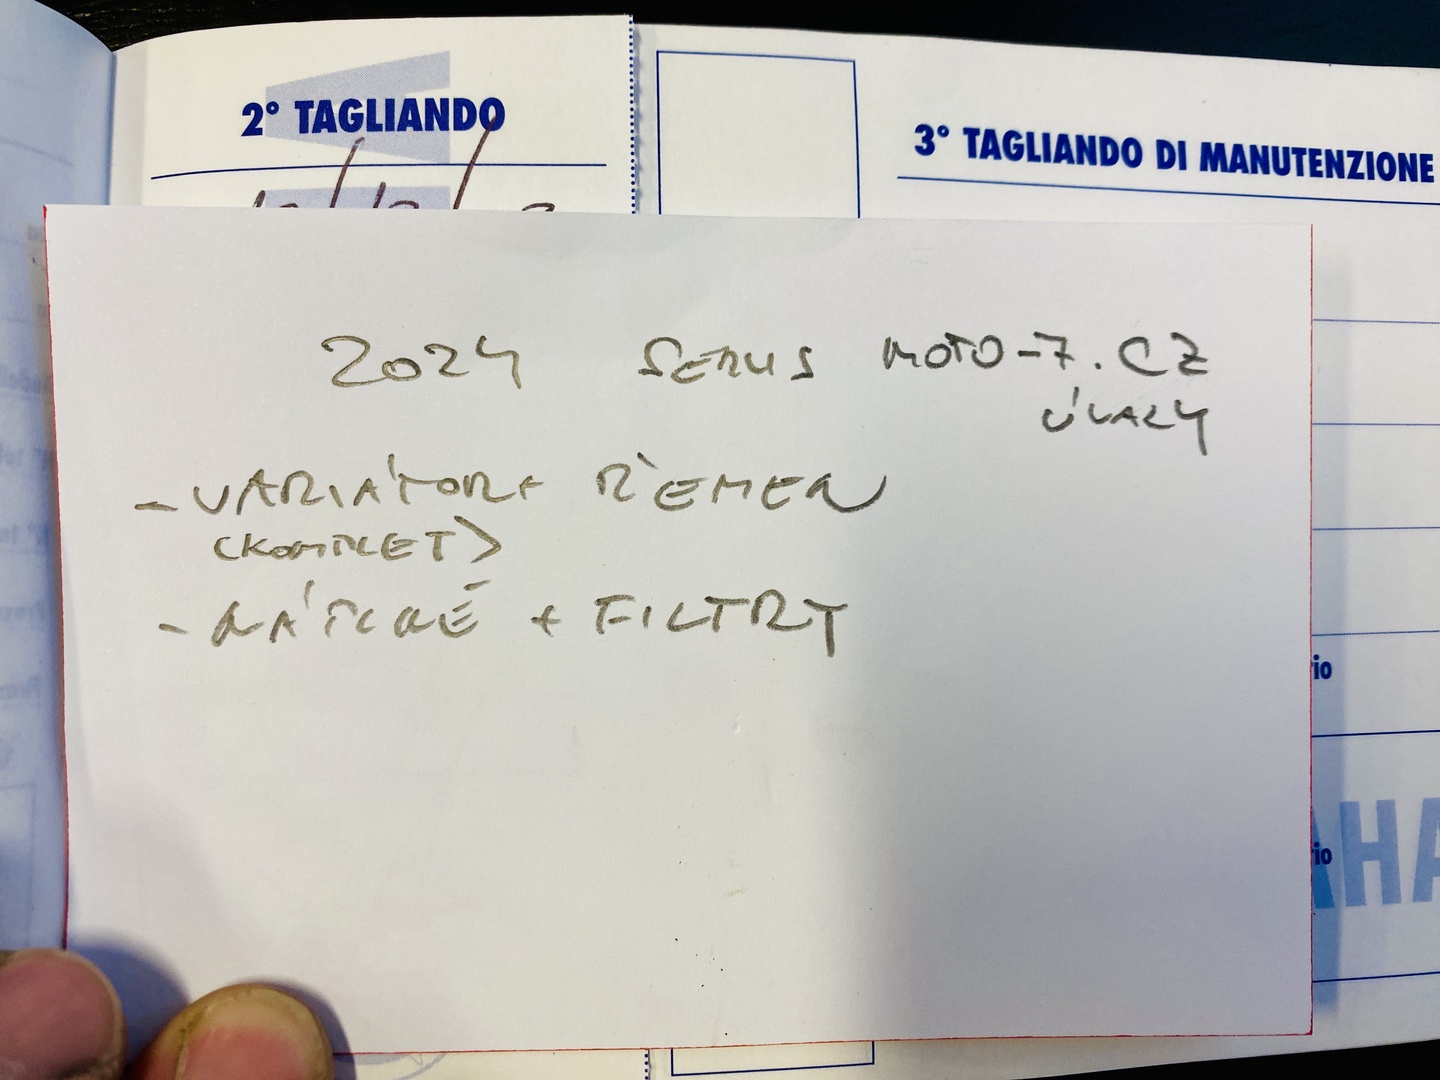 2° TAGLIANDO
3° TAGLIANDO DI MANUTENZIONE
2024 SERVIS MOTO-7.CZ
ÚVALY
- VARIÁTOR + ŘEMEN
(KOMPLET)
- NÁPLNĚ + FILTRY
io
rio
AHA